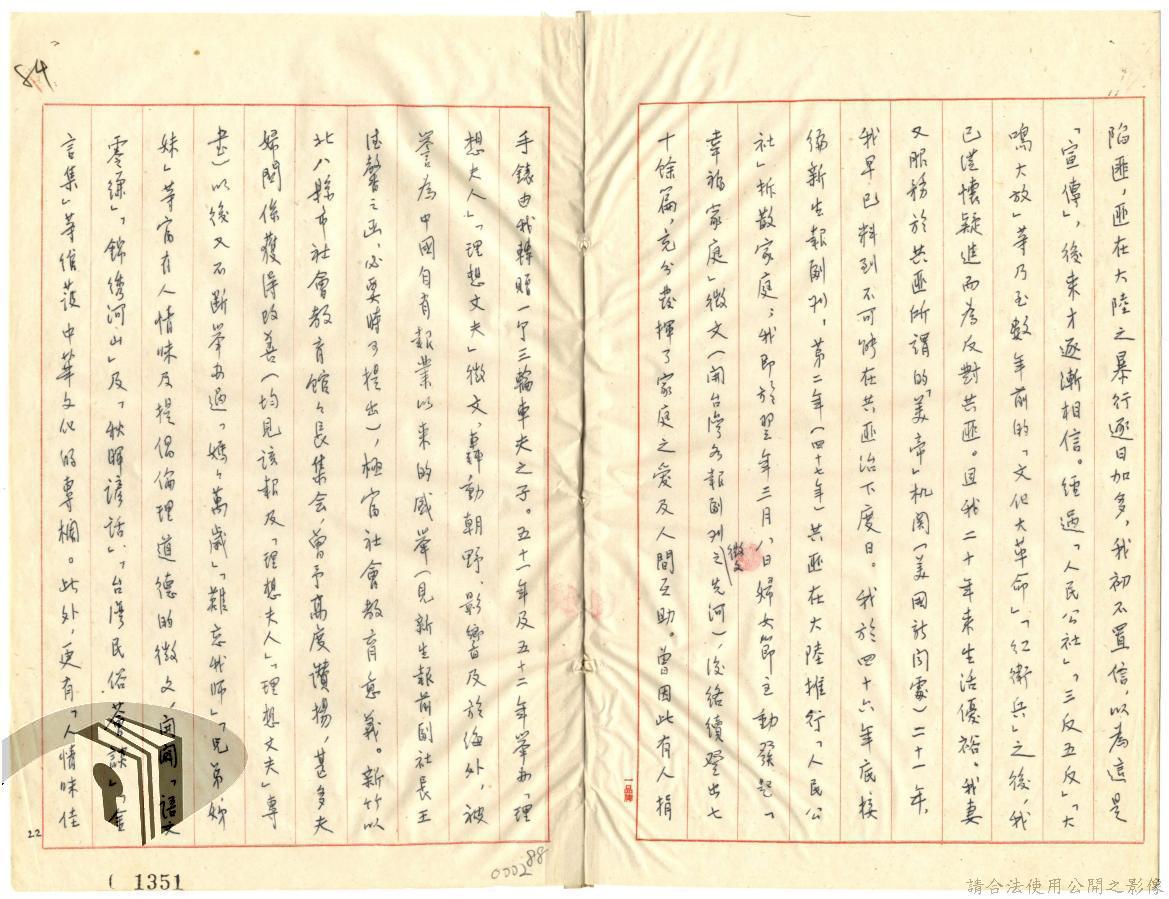 陷匪，匪在大陸之暴行逐日加多，我初不置信，以為這是
「宣傳」，後來才逐漸相信。經過「人民公社」「三反五反」「大
鳴大放」等乃至數年前的「文化大革命」「紅衛兵」之後，我
已從懷疑進而為反對共匪。且我二十年來生活優裕。我妻
又服務於共匪所謂的「美帝」机関（美國新聞處）二十一年，
我早已料到不可能在共匪治下度日。我於四十六年底接
編新生報副刊，第二年（四十七年）共匪在大陸推行「人民公
社」拆散家庭，我即於翌年三月八日婦女節主動發起「
幸福家庭」徵文（開台灣各報副刊徵文之先河），後絡續登出七
十餘篇，充分發揮了家庭之愛及人間互助。曾因此有人捐
手錶由我轉贈一個三輪車夫之子。五十一年及五十二年舉辦「理
想夫人」「理想丈夫」徵文，轟動朝野、影響及於海外，被
譽為中國自有報業以來的盛舉（見新生報前副社長王
德馨之函，必要時可提出），極富社會教育意義。新竹以
北八縣市社會教育館館長集會，曾予高度讚揚，甚多夫
婦関係獲得改善（均見該報及「理想夫人」「理想丈夫」專
書）以後又不斷舉辦過「媽媽萬歲」「難忘我師」「兄弟姊
妹」等富有人情味及提倡倫理道德的徵文，同闢「語文
零縑」「錦繡河山」及「秋暉諺話」、「台灣民俗薈談」「金
言集」等維護中華文化的專欄。此外，更有「人情味佳
一品牌
84
22
( 1351
000288
請合法使用公開之影像